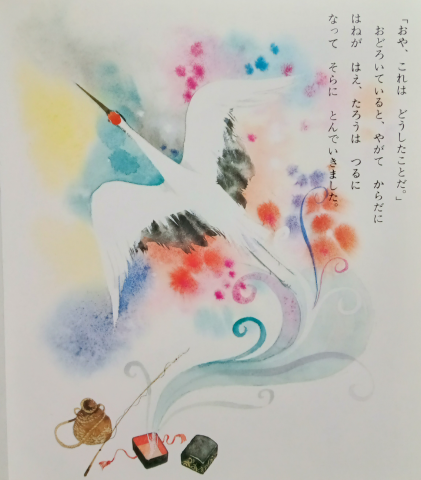 「おや、これは　どうしたことだ。」
おどろいていると、やがて　からだに
はねが　はえ、たろうは　つるに
なって　そらに　とんでいきました。